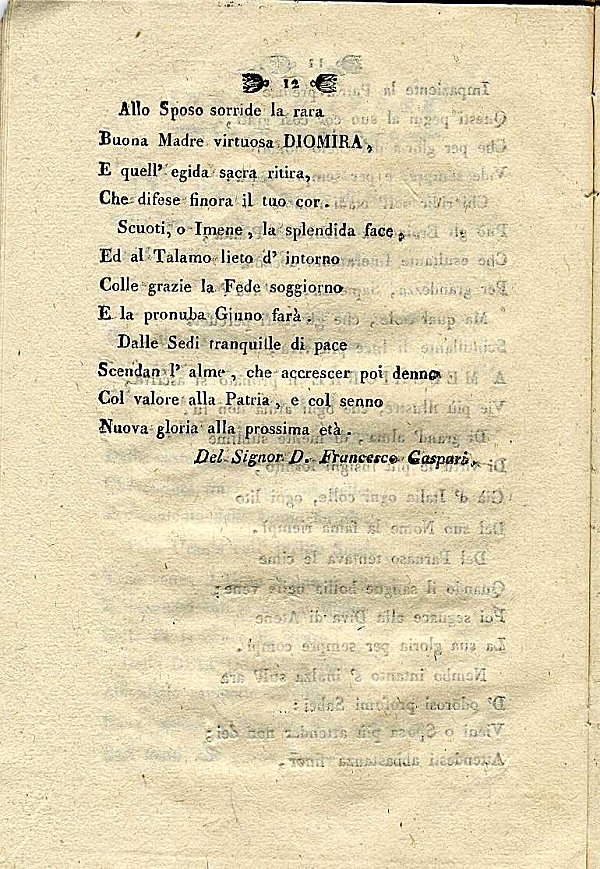 12
Allo Sposo sorride la rara
Buona Madre virtuosa DIOMIRA,
E quell' egida sacra ritira,
Che difese finora il tuo cor.
Scuoti, o Imene, la splendida face,
Ed al Talamo lieto d' intorno
Colle grazie la Fede soggiorno
E la pronuba Giuno farà.
Dalle Sedi tranquille di pace
Scendan l' alme, che accrescer poi denno
Col valore alla Patria, e col senno
Nuova gloria alla prossima età.
Del Signor D. Francesco Gaspari,